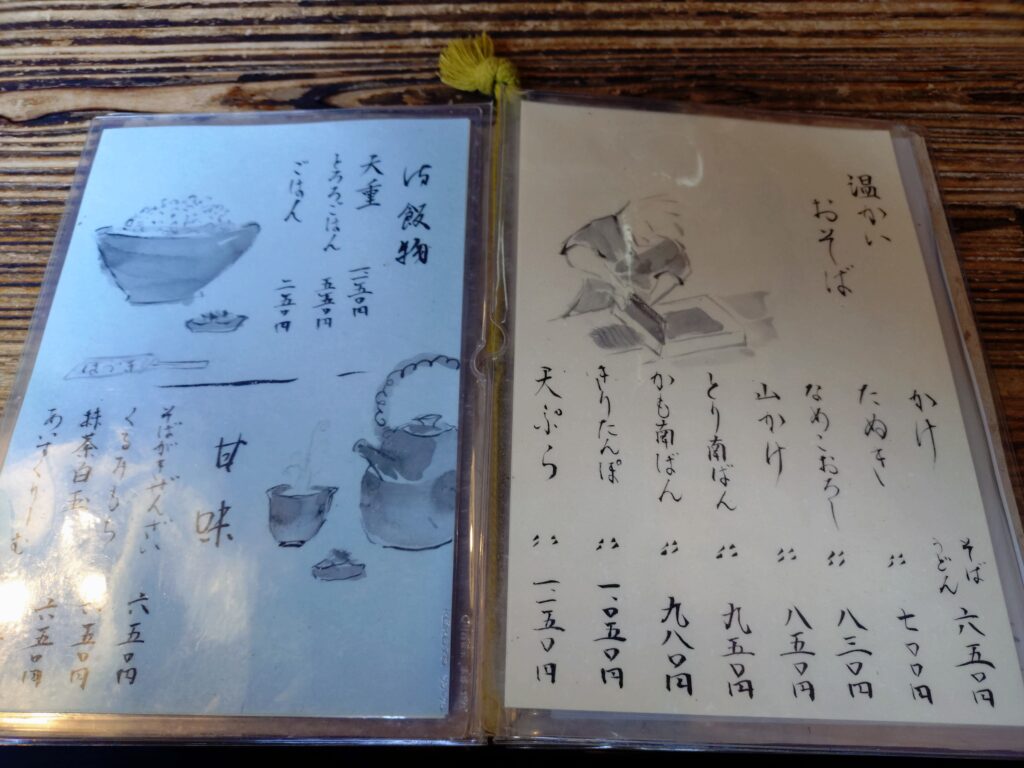 温かい
おそば
かけ そば うどん 六五〇円
たぬき 〃 七〇〇円
なめこおろし 〃 八三〇円
山かけ 〃 八五〇円
とり南ばん 〃 九五〇円
かも南ばん 〃 九八〇円
きりたんぽ 〃 一、〇五〇円
天ぷら 〃 一、二五〇円
御飯物
天重
とろろごはん 五五〇円
ごはん 二五〇円
はづき
甘味
そばがきぜんざい 六五〇円
くるみもち 五〇円
抹茶白玉 六五〇円
あいすくりーむ